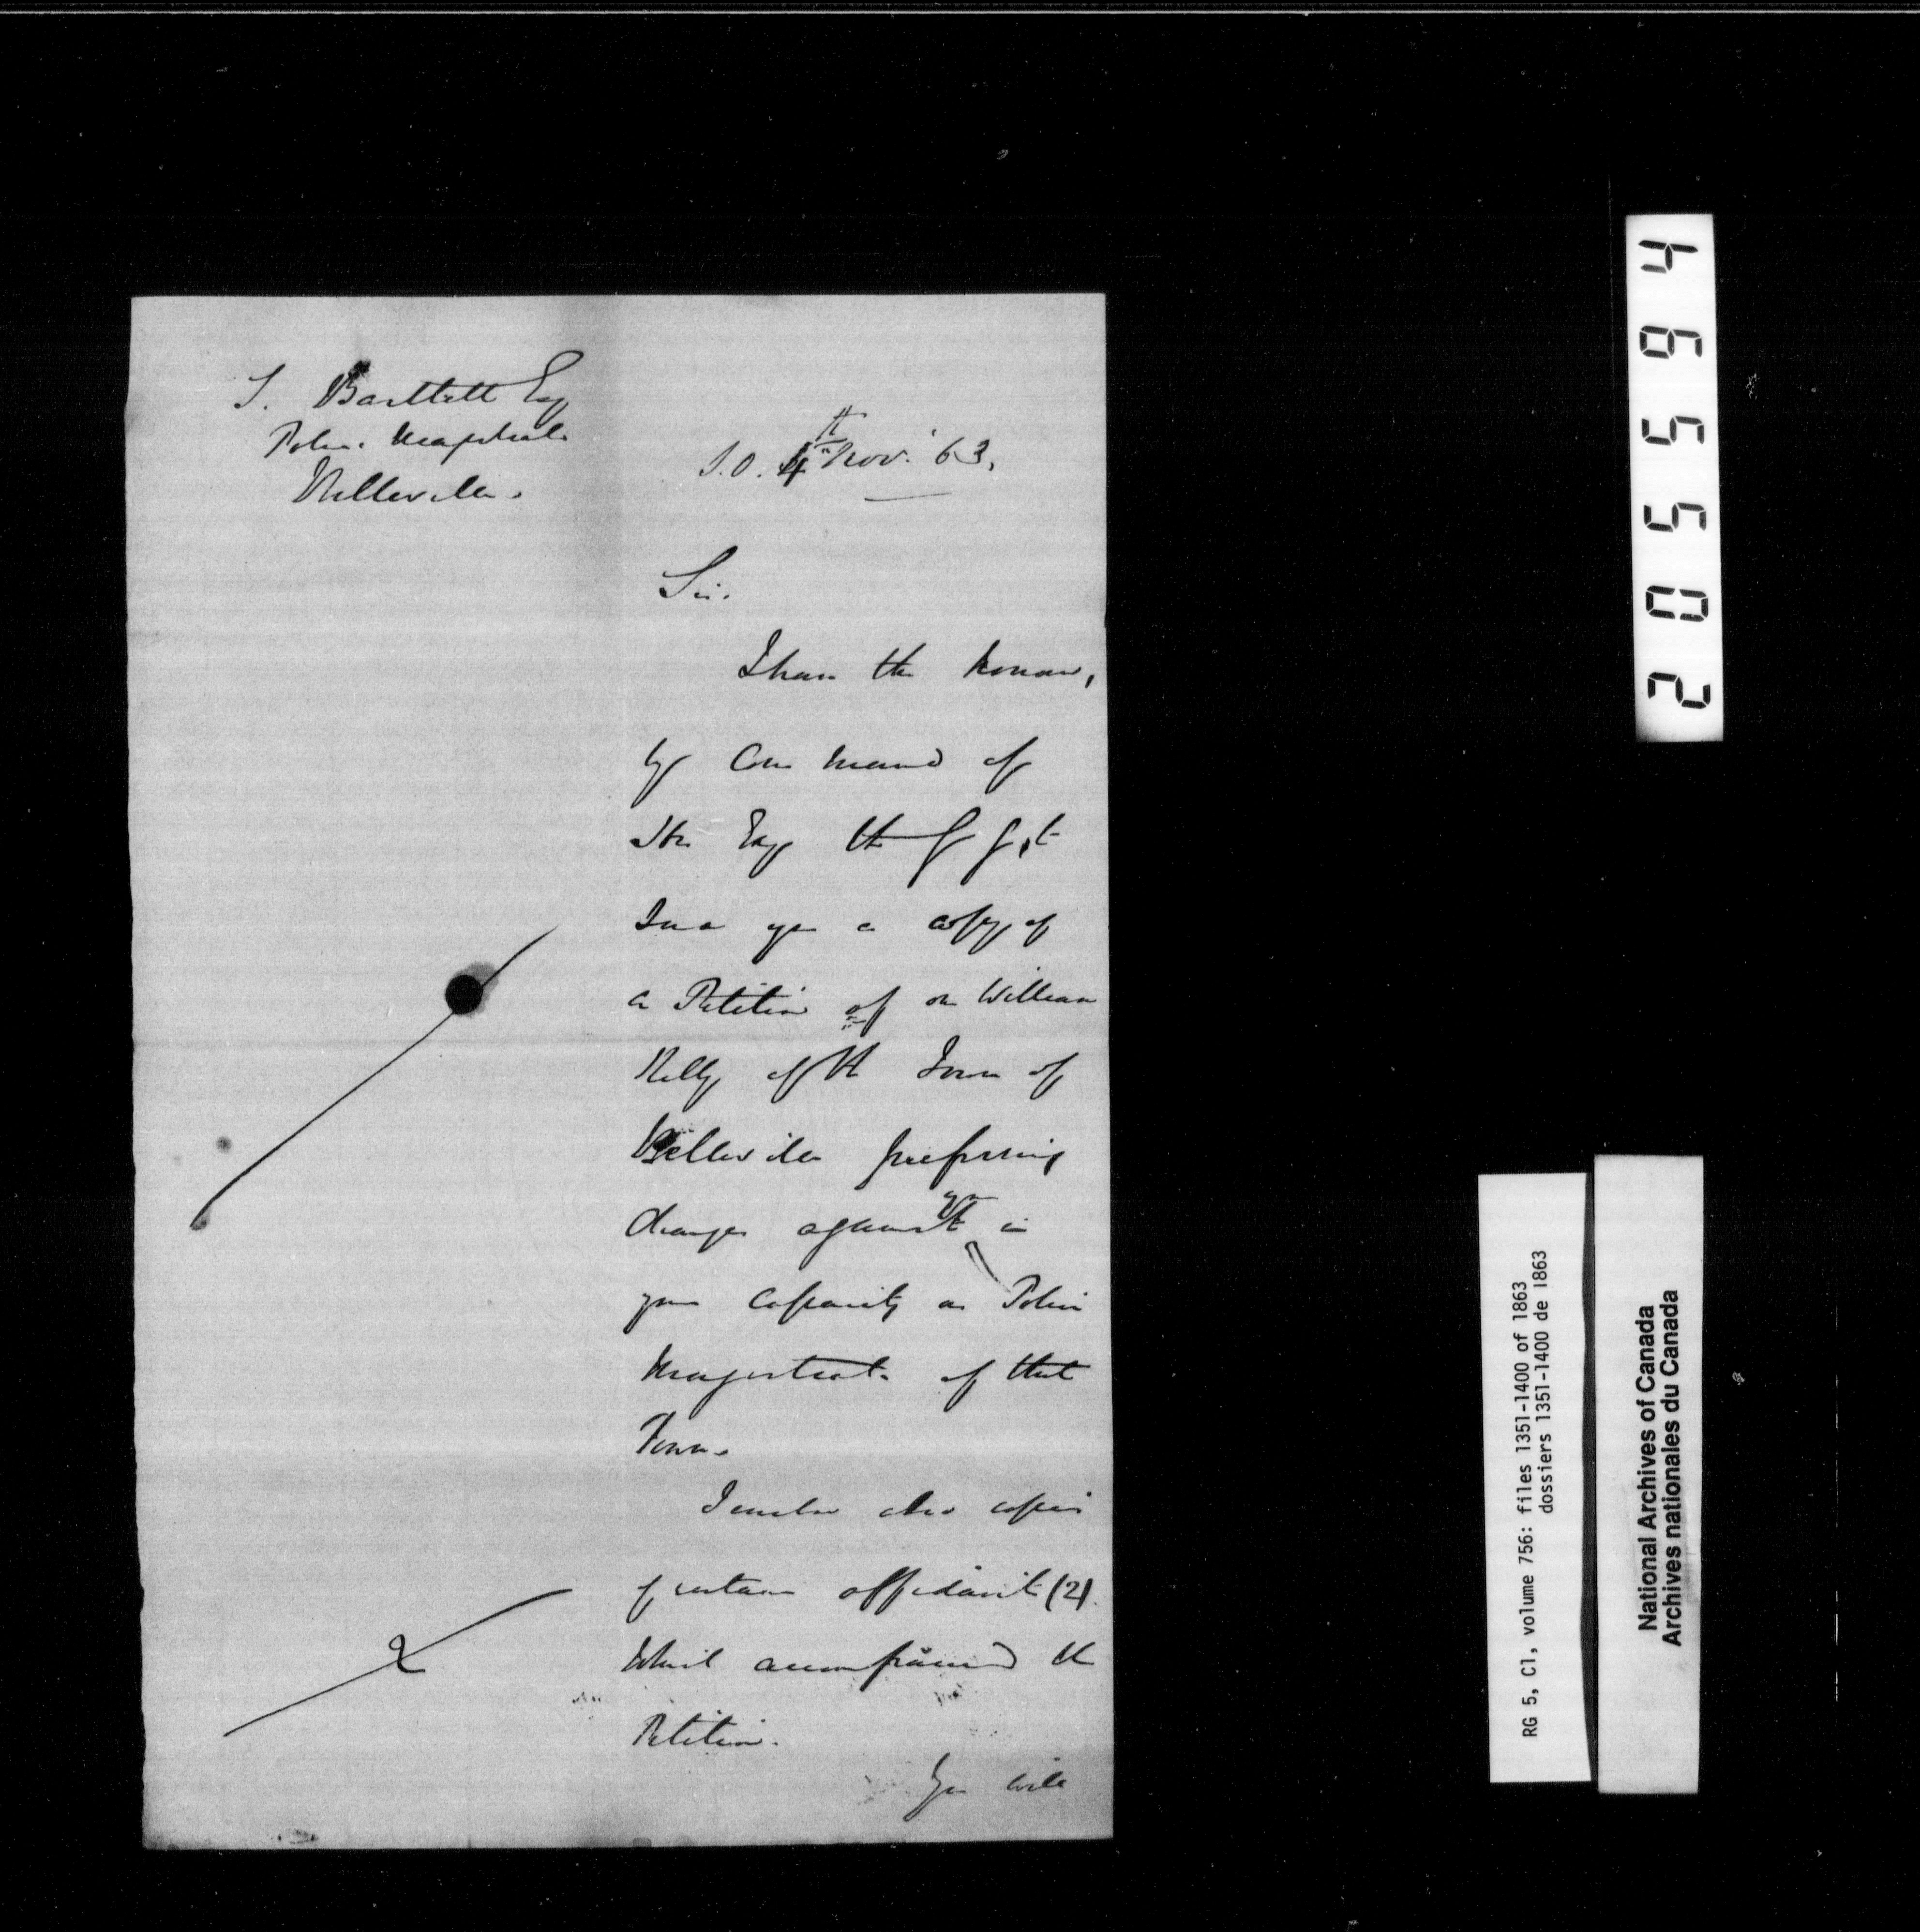 S. Bartlett Esq
Police Magistrate
Belleville.
S.O. 4th Nov. '63.
Sir.
I have the honour,
by Command of
His Exy the G G, to
send you a copy of
a Petition of one William
Kelly of the Town of
Belleville preferring
charges against you in
your Capacity as Police
Magistrate of that
Town.
I enclose also copies
of certain affidavits (2)
which accompanied the
Petition.
You will
205594
RG 5, C1, volume 756: files 1351-1400 of 1863
dossiers 1351-1400 de 1863
National Archives of Canada
Archives nationales du Canada